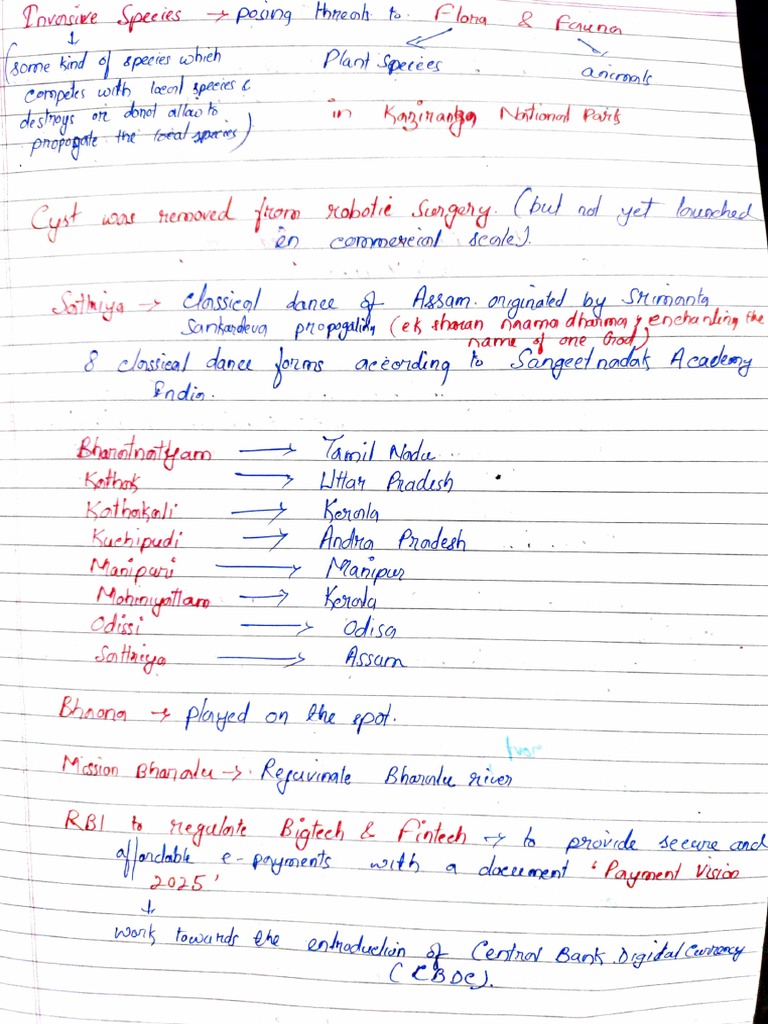 Invasive Species → posing threats to Flora & Fauna
(some kind of species which
competes with local species &
destroys or donot allow to
propogate the local species)
Plant Species
animals
in Kaziranga National Park
Cyst was removed from robotic surgery. (but not yet launched
in commercial scale).
Sathriya → classical dance of Assam originated by Srimanta
Sankardeva propogating (ek sharan naama dharma; enchanting the
name of one God)
8 classical dance forms according to Sangeet nadak Academy
India.
Bharatnatyam → Tamil Nadu
Kathak → Uttar Pradesh
Kathakali → Kerala
Kuchipudi → Andra Pradesh
Manipuri → Manipur
Mohiniyattam → Kerala
Odissi → Odisa
Sathriya → Assam
Bhaona → played on the spot.
Mission Bharalu → Rejuvinate Bharalu river
RBI to regulate Bigtech & Fintech → to provide secure and
affordable e-payments with a document 'Payment Vision
2025'
work towards the entroduction of Central Bank Digital Currency
(CBDC).